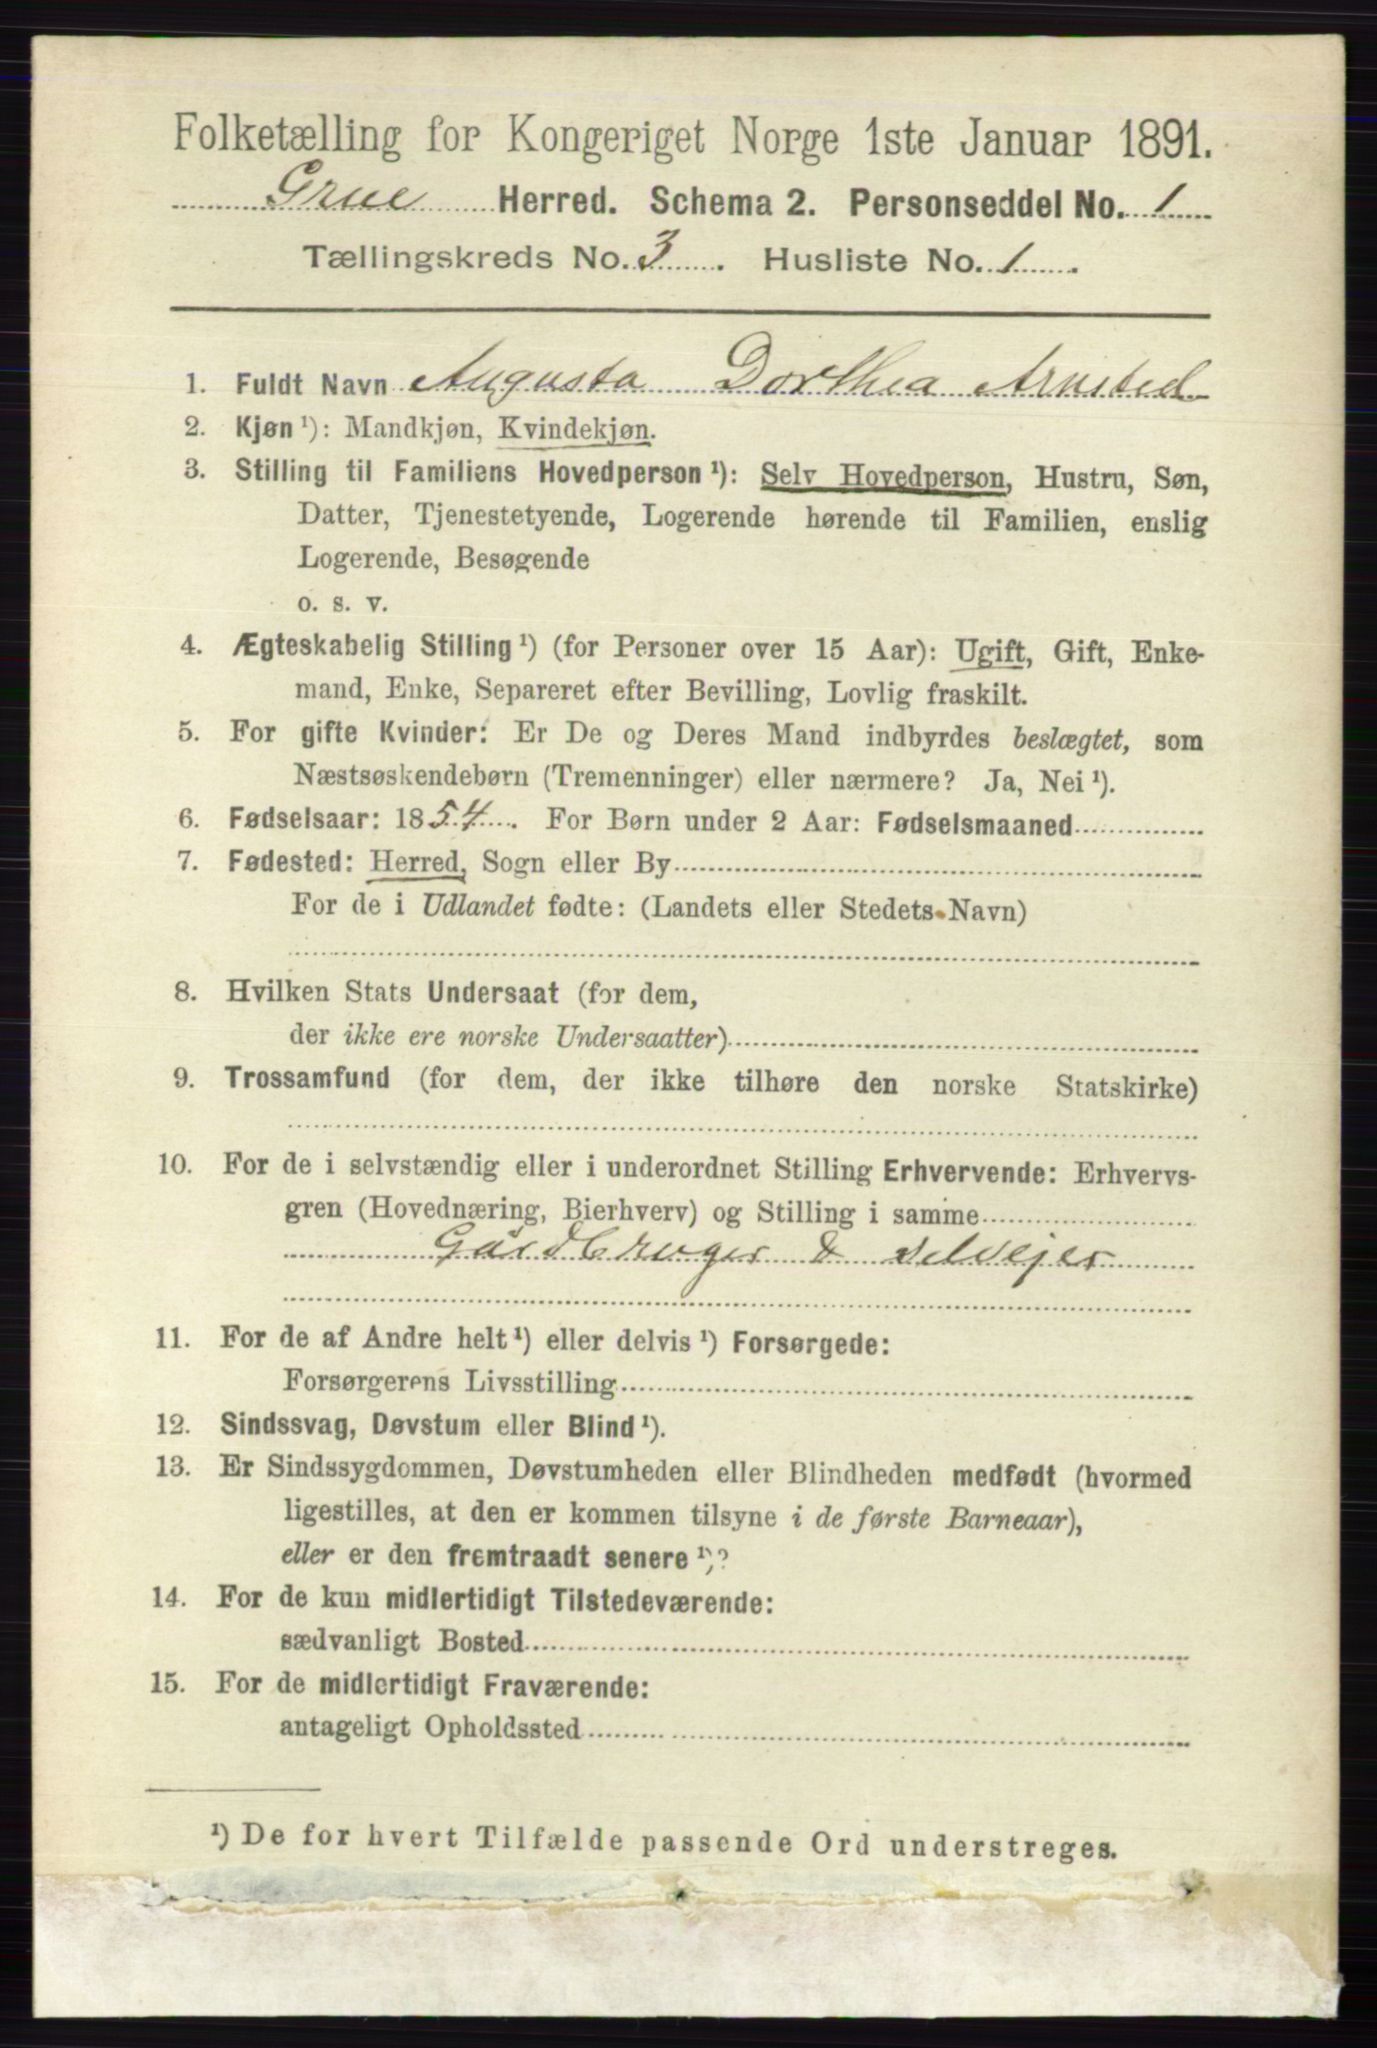 Folketælling for Kongeriget Norge 1ste Januar 1891.
Grue Herred. Schema 2. Personseddel No. 1
Tællingskreds No. 3. Husliste No. 1.
1. Fuldt Navn Augusta Dorthea Arnsted
2. Kjøn ¹): Mandkjøn, Kvindekjøn.
3. Stilling til Familiens Hovedperson ¹): Selv Hovedperson, Hustru, Søn,
Datter, Tjenestetyende, Logerende hørende til Familien, enslig
Logerende, Besøgende
o. s. v.
4. Ægteskabelig Stilling ¹) (for Personer over 15 Aar): Ugift, Gift, Enke-
mand, Enke, Separeret efter Bevilling, Lovlig fraskilt.
5. For gifte Kvinder: Er De og Deres Mand indbyrdes beslægtet, som
Næstsøskendebørn (Tremenninger) eller nærmere? Ja, Nei ¹).
6. Fødselsaar: 1854. For Børn under 2 Aar: Fødselsmaaned
7. Fødested: Herred, Sogn eller By
For de i Udlandet fødte: (Landets eller Stedets Navn)
8. Hvilken Stats Undersaat (for dem,
der ikke ere norske Undersaatter)
9. Trossamfund (for dem, der ikke tilhøre den norske Statskirke)
10. For de i selvstændig eller i underordnet Stilling Erhvervende: Erhvervs-
gren (Hovednæring, Bierhverv) og Stilling i samme
Gårdbruger & selvejer
11. For de af Andre helt ¹) eller delvis ¹) Forsørgede:
Forsørgerens Livsstilling
12. Sindssvag, Døvstum eller Blind ¹).
13. Er Sindssygdommen, Døvstumheden eller Blindheden medfødt (hvormed
ligestilles, at den er kommen tilsyne i de første Barneaar),
eller er den fremtraadt senere ¹)?
14. For de kun midlertidigt Tilstedeværende:
sædvanligt Bosted
15. For de midlertidigt Fraværende:
antageligt Opholdssted
¹) De for hvert Tilfælde passende Ord understreges.